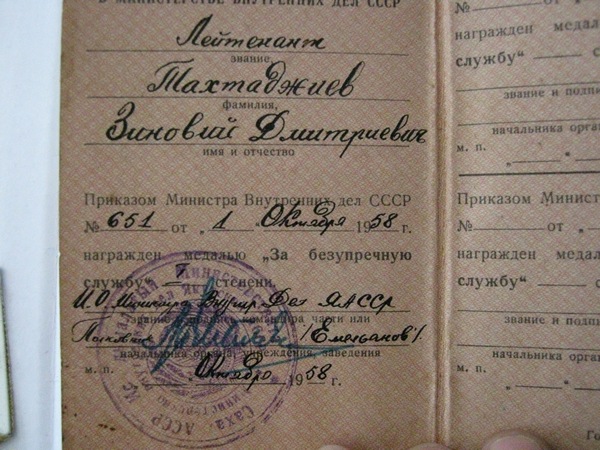 В МИНИСТЕРСТВЕ ВНУТРЕННИХ ДЕЛ СССР
Лейтенант
звание,
Тахтаджиев
фамилия,
Зиновий Дмитриевич
имя и отчество
Приказом Министра Внутренних дел СССР
№ 651 от „ 1 Октября 1958 г.
награжден медалью „За безупречную
службу“ I степени.
И.О. Министра Внутр. Дел ЯАССР
звание, подпись командира части или
Полковник /Емельянов/.
начальника органа, учреждения, заведения
м. п. Октября 1958 г.
№ от „
награжден медал
службу“
звание и подпи
начальника орган
м. п. „ “
Приказом Минист
№ от „
награжден медал
службу“
звание и подпи
начальника орган
м. п. „ “